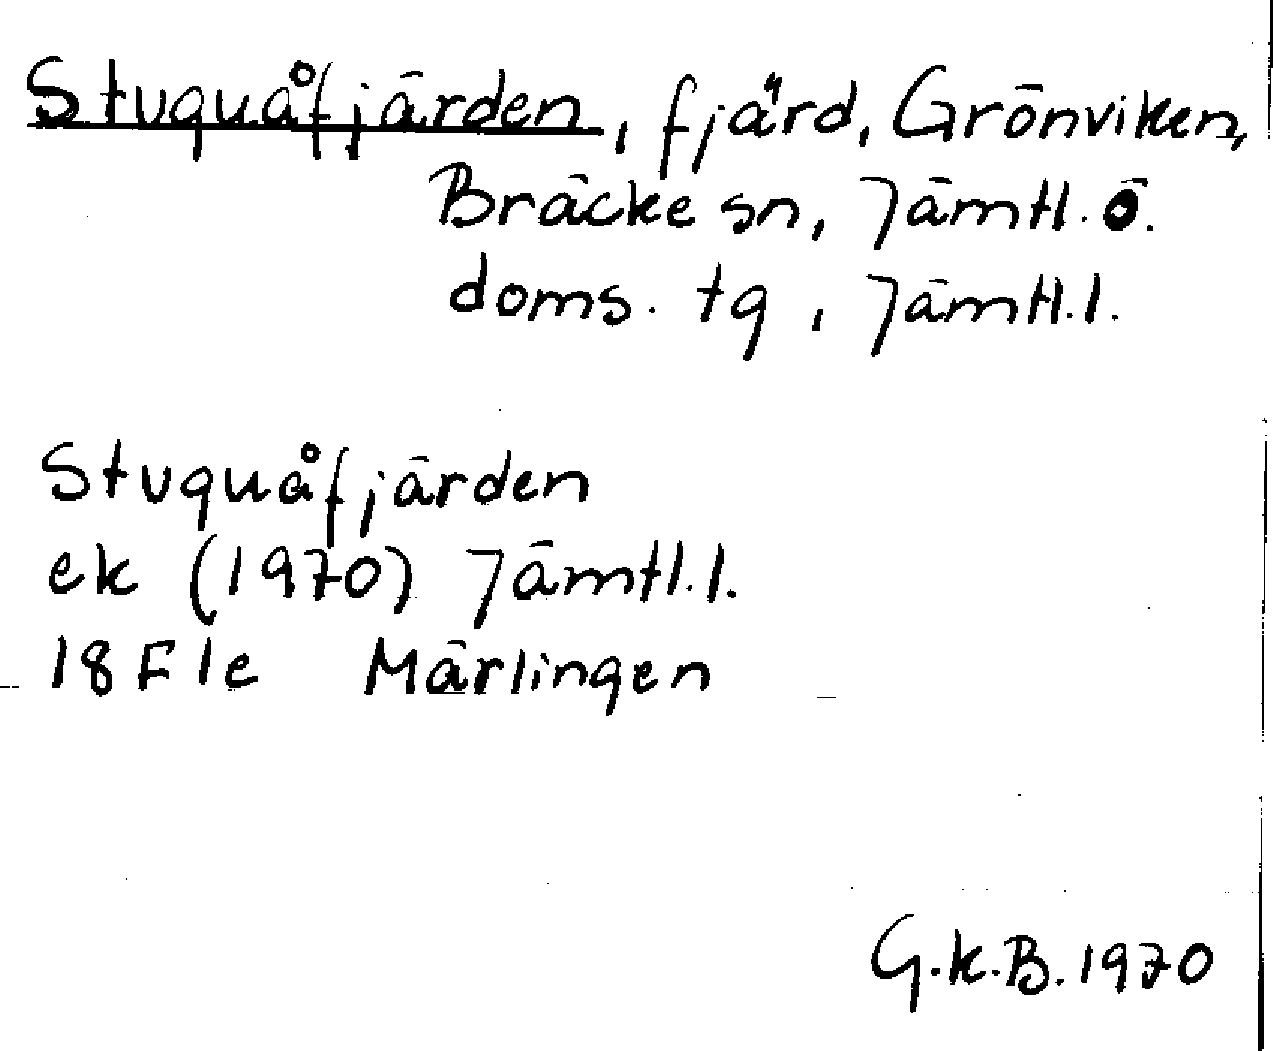 Stuguåfjärden, fjärd, Grönviken,
Bräcke sn, Jämtl. ö.
doms. tg, Jämtl. l.
Stuguåfjärden
ek (1970) Jämtl. l.
18 F 1e Märlingen
G.K.B. 1970